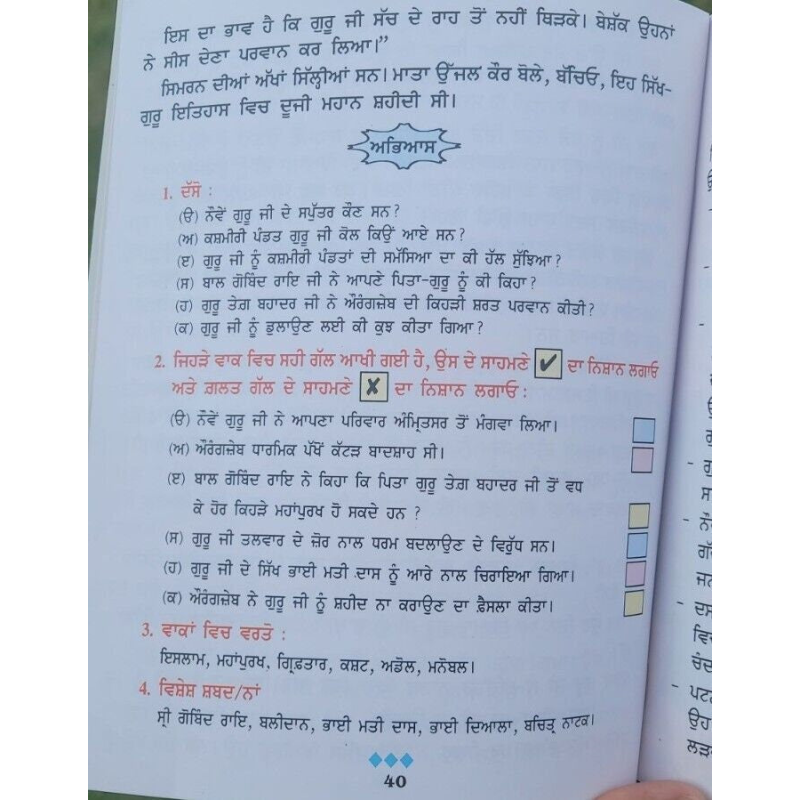 ਇਸ ਦਾ ਭਾਵ ਹੈ ਕਿ ਗੁਰੂ ਜੀ ਸੱਚ ਦੇ ਰਾਹ ਤੋਂ ਨਹੀਂ ਥਿੜਕੇ। ਬੇਸ਼ੱਕ ਉਹਨਾਂ
ਨੇ ਸੀਸ ਦੇਣਾ ਪਰਵਾਨ ਕਰ ਲਿਆ।”
ਸਿਮਰਨ ਦੀਆਂ ਅੱਖਾਂ ਸਿੱਲ੍ਹੀਆਂ ਸਨ। ਮਾਤਾ ਉੱਜਲ ਕੌਰ ਬੋਲੇ, ਬੱਚਿਓ, ਇਹ ਸਿੱਖ-
ਗੁਰੂ ਇਤਿਹਾਸ ਵਿਚ ਦੂਜੀ ਮਹਾਨ ਸ਼ਹੀਦੀ ਸੀ।
ਅਭਿਆਸ
1. ਦੱਸੋ :
(ੳ) ਨੌਵੇਂ ਗੁਰੂ ਜੀ ਦੇ ਸਪੁੱਤਰ ਕੌਣ ਸਨ?
(ਅ) ਕਸ਼ਮੀਰੀ ਪੰਡਤ ਗੁਰੂ ਜੀ ਕੋਲ ਕਿਉਂ ਆਏ ਸਨ?
(ੲ) ਗੁਰੂ ਜੀ ਨੂੰ ਕਸ਼ਮੀਰੀ ਪੰਡਤਾਂ ਦੀ ਸਮੱਸਿਆ ਦਾ ਕੀ ਹੱਲ ਸੁੱਝਿਆ?
(ਸ) ਬਾਲ ਗੋਬਿੰਦ ਰਾਇ ਜੀ ਨੇ ਆਪਣੇ ਪਿਤਾ-ਗੁਰੂ ਨੂੰ ਕੀ ਕਿਹਾ?
(ਹ) ਗੁਰੂ ਤੇਗ਼ ਬਹਾਦਰ ਜੀ ਨੇ ਔਰੰਗਜ਼ੇਬ ਦੀ ਕਿਹੜੀ ਸ਼ਰਤ ਪਰਵਾਨ ਕੀਤੀ?
(ਕ) ਗੁਰੂ ਜੀ ਨੂੰ ਡੁਲਾਉਣ ਲਈ ਕੀ ਕੁਝ ਕੀਤਾ ਗਿਆ?
2. ਜਿਹੜੇ ਵਾਕ ਵਿਚ ਸਹੀ ਗੱਲ ਆਖੀ ਗਈ ਹੈ, ਉਸ ਦੇ ਸਾਹਮਣੇ ✔ ਦਾ ਨਿਸ਼ਾਨ ਲਗਾਓ
ਅਤੇ ਗ਼ਲਤ ਗੱਲ ਦੇ ਸਾਹਮਣੇ ✘ ਦਾ ਨਿਸ਼ਾਨ ਲਗਾਓ :
(ੳ) ਨੌਵੇਂ ਗੁਰੂ ਜੀ ਨੇ ਆਪਣਾ ਪਰਿਵਾਰ ਅੰਮ੍ਰਿਤਸਰ ਤੋਂ ਮੰਗਵਾ ਲਿਆ।
(ਅ) ਔਰੰਗਜ਼ੇਬ ਧਾਰਮਿਕ ਪੱਖੋਂ ਕੱਟੜ ਬਾਦਸ਼ਾਹ ਸੀ।
(ੲ) ਬਾਲ ਗੋਬਿੰਦ ਰਾਇ ਨੇ ਕਿਹਾ ਕਿ ਪਿਤਾ ਗੁਰੂ ਤੇਗ਼ ਬਹਾਦਰ ਜੀ ਤੋਂ ਵਧ
ਕੇ ਹੋਰ ਕਿਹੜੇ ਮਹਾਂਪੁਰਖ ਹੋ ਸਕਦੇ ਹਨ ?
(ਸ) ਗੁਰੂ ਜੀ ਤਲਵਾਰ ਦੇ ਜ਼ੋਰ ਨਾਲ ਧਰਮ ਬਦਲਾਉਣ ਦੇ ਵਿਰੁੱਧ ਸਨ।
(ਹ) ਗੁਰੂ ਜੀ ਦੇ ਸਿੱਖ ਭਾਈ ਮਤੀ ਦਾਸ ਨੂੰ ਆਰੇ ਨਾਲ ਚਿਰਾਇਆ ਗਿਆ।
(ਕ) ਔਰੰਗਜ਼ੇਬ ਨੇ ਗੁਰੂ ਜੀ ਨੂੰ ਸ਼ਹੀਦ ਨਾ ਕਰਾਉਣ ਦਾ ਫ਼ੈਸਲਾ ਕੀਤਾ।
3. ਵਾਕਾਂ ਵਿਚ ਵਰਤੋ :
ਇਸਲਾਮ, ਮਹਾਂਪੁਰਖ, ਗ੍ਰਿਫ਼ਤਾਰ, ਕਸ਼ਟ, ਅਡੋਲ, ਮਨੋਬਲ।
4. ਵਿਸ਼ੇਸ਼ ਸ਼ਬਦ/ਨਾਂ
ਸ੍ਰੀ ਗੋਬਿੰਦ ਰਾਇ, ਬਲੀਦਾਨ, ਭਾਈ ਮਤੀ ਦਾਸ, ਭਾਈ ਦਿਆਲਾ, ਬਚਿਤ੍ਰ ਨਾਟਕ।
40